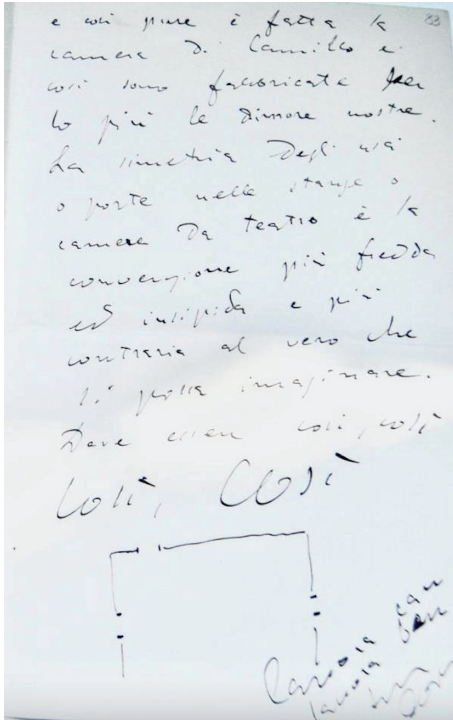 83
e così pure è fatta la
camera di Camillo e
così sono fabbricate per
lo più le dimore nostre.
La simetria degli usci
o porte nelle stanze o
camere da teatro è la
convenzione più fredda
ed insipida e più
contraria al vero che
si possa immaginare.
Deve essere così, così
Così, Così